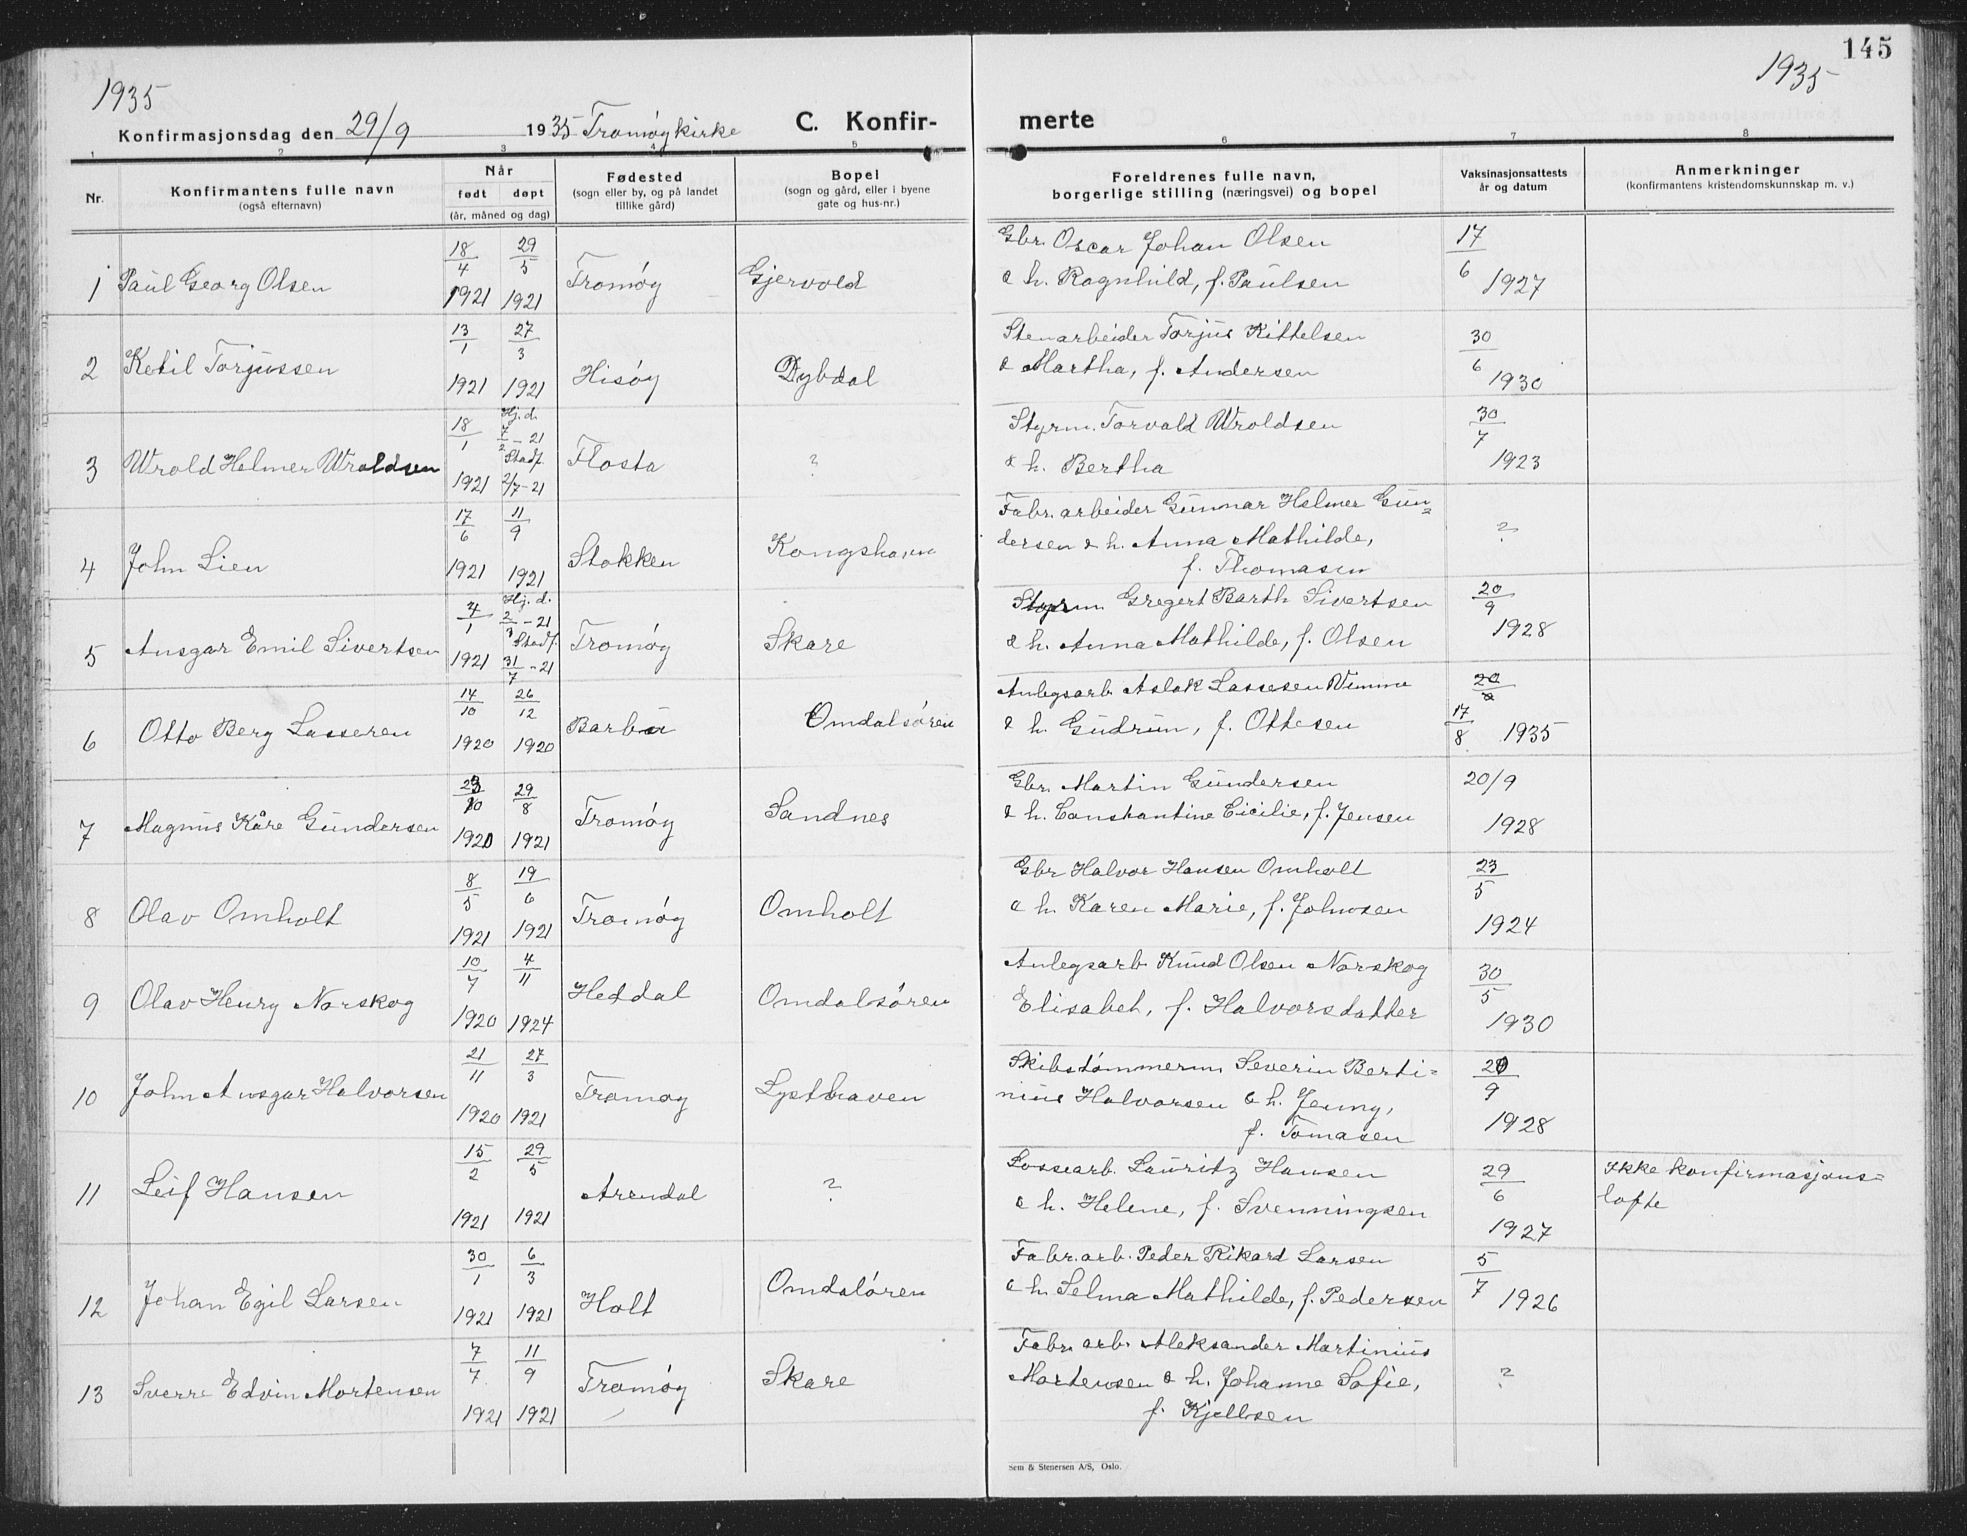 145
1935
1935
Konfirmasjonsdag den 29/9 1935 Tromøy kirke C. Konfir-
merte
1 2 3 4 5
6 7 8
Nr.
Konfirmantens fulle navn
(også efternavn)
Når
født døpt
(år, måned og dag)
Fødested
(sogn eller by, og på landet
tillike gård)
Bopel
(sogn og gård, eller i byene
gate og hus-nr.)
Foreldrenes fulle navn,
borgerlige stilling (næringsvei) og bopel
Vaksinasjonsattests
år og datum
Anmerkninger
(konfirmantens kristendomskunnskap m. v.)
1 Paul Georg Olsen 18/4 1921 29/5 1921 Tromøy Gjervold
Gbr. Oscar Johan Olsen
& h. Ragnhild, f. Paulsen
17/6 1927
2 Ketil Torjussen 13/1 1921 27/3 1921 Hisøy Dybdal
Stenarbeider Torjus Kittelsen
& Martha, f. Andersen
30/6 1930
3 Wrold Helmer Wroldsen 18/1 1921 Hj. d. 7/2 - 21 Stadf. 2/7 - 21 Flosta ?
Styrm. Torvald Wroldsen
& h. Bertha
30/7 1923
4 John Lien 17/6 1921 11/9 1921 Stokken Kongshavn
Fabr. arbeider Gunnar Helmer Gun=
dersen & h. Anna Mathilde,
f. Thomasen
?
5 Ansgar Emil Sivertsen 4/1 1921 Hj. d. 2/3 - 21 Stadf. 31/7 - 21 Tromøy Skare
Styrm. Gregert Barth Sivertsen
& h. Anna Mathilde, f. Olsen
20/9 1928
6 Otto Berg Lasseren 14/10 1920 26/12 1920 Barbu Omdalsøren
Anlegsarb. Aslak Lassesen Vimme
& h. Gudrun, f. Ottesen
17/8 1935
7 Magnus Kåre Gundersen 23/10 1920 29/8 1921 Tromøy Sandnes
Gbr. Martin Gundersen
& h. Constantine Cicilie, f. Jensen
20/9 1928
8 Olav Omholt 8/5 1921 19/6 1921 Tromøy Omholt
Gbr. Halvor Hansen Omholt
& h. Karen Marie, f. Johnsen
23/5 1924
9 Olav Henry Norskog 10/7 1920 4/11 1924 Heddal Omdalsøren
Anlegsarb. Knud Olsen Norskog
Elisabeh, f. Halvorsdatter
30/5 1930
10 John Ansgar Halvorsen 21/11 1920 27/3 1921 Tromøy Lysthaven
Skibstømmerm. Severin Berti=
nius Halvorsen & h. Jenny,
f. Tomasen
20/9 1928
11 Leif Hansen 15/2 1921 29/5 1921 Arendal ?
Lossearb. Lauritz Hansen
& h. Helene, f. Svenningsen
29/6 1927
Ikke konfirmasjons=
løfte
12 Johan Egil Larsen 30/1 1921 6/3 1921 Holt Omdaløren
Fabr. arb. Peder Rikard Larsen
& h. Selma Mathilde, f. Pedersen
5/7 1926
13 Sverre Edvin Mortensen 7/7 1921 11/9 1921 Tromøy Skare
Fabr. arb. Aleksander Martinius
Mortensen & h. Johanne Sofie,
f. Kjellsen
?
Sem & Stenersen A/S, Oslo.